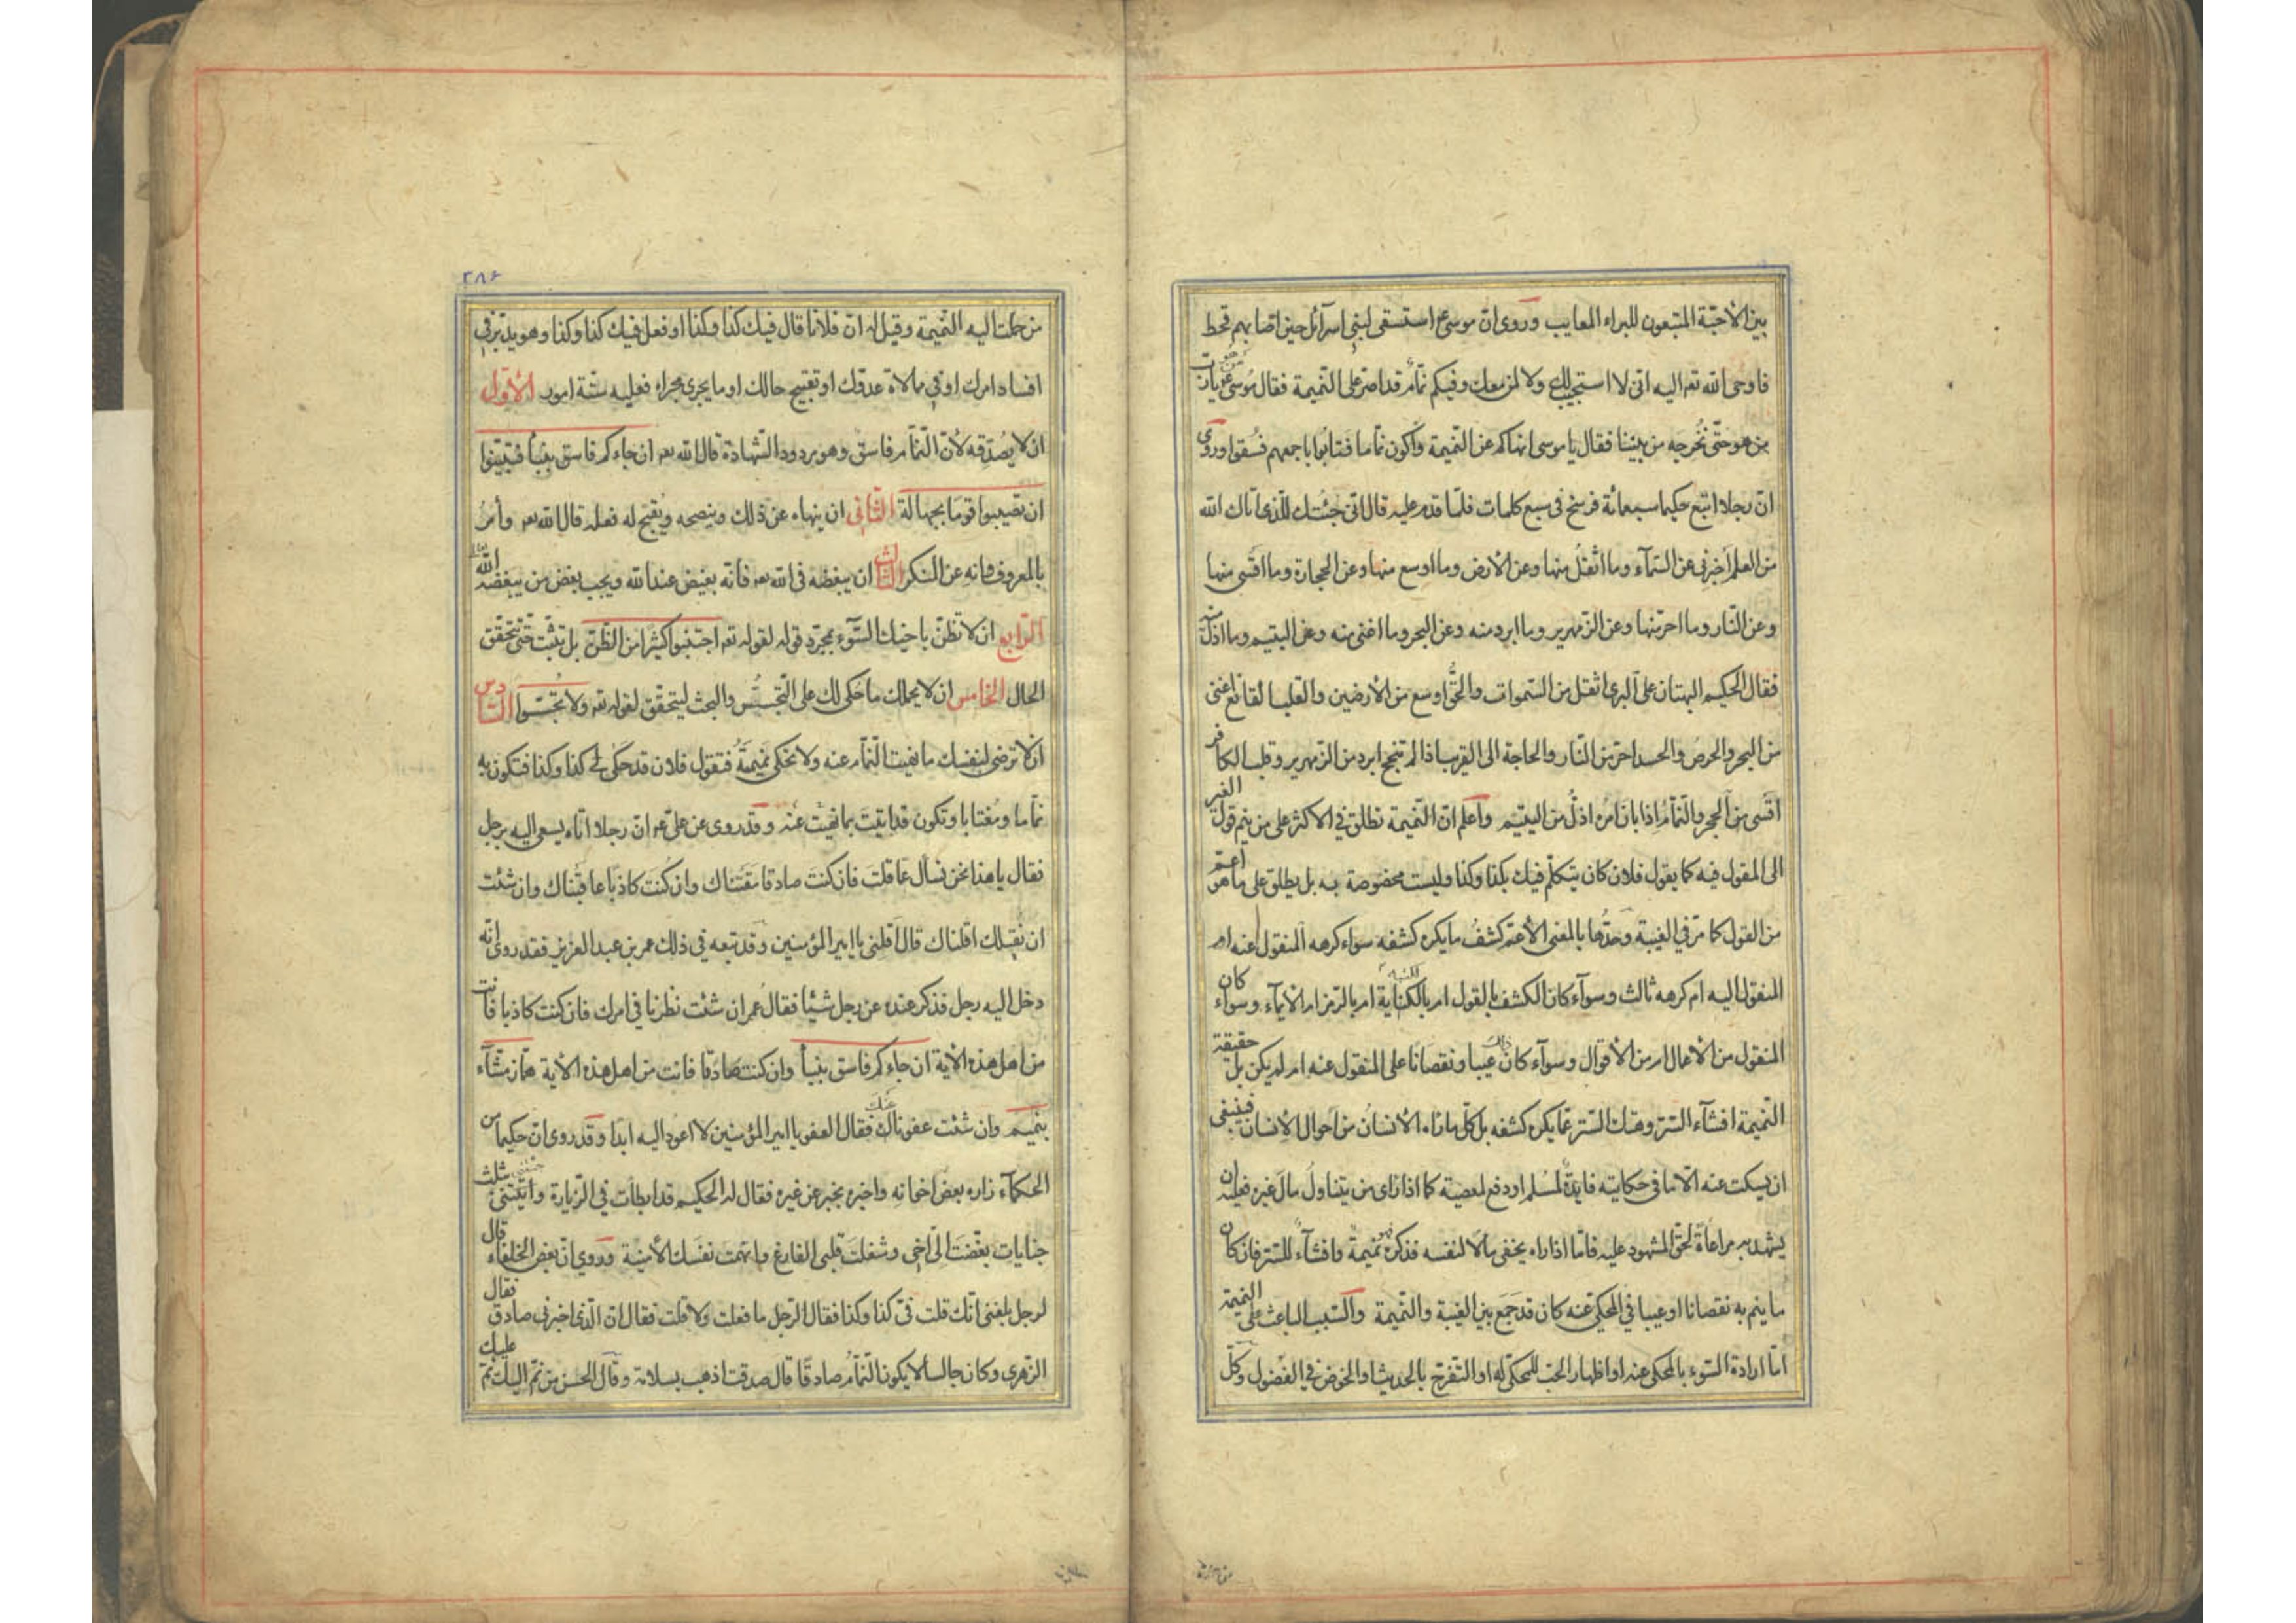 بين الأحبّة المتبعون للبراء المعايب وروى ان موسى ع استسقى لبنى اسرآئل حين اصابهم قحط
فاوحى الله تعه اليه انى لا استجيب لك ولا لمن معك وفيكم نمّام قد اصرّ على النّميمة فقال موسى ع يارب
من هو حتّى نُخرجه من بيننا فقال يا موسى انهاكم عن النّميمة واكون نمّاما فتابوا باجمعهم فسُقوا وروى
انّ رجلا اتبع حكيما سبعمائة فرسخ فى سبع كلمات فلمّا قدم عليه قال انّى جئتك للّذى اتاك الله
من العلم أخبرنى عن السّمآء وما اثقل منها وعن الأرض وما اوسع منها وعن الحجارة وما اقسى منها
وعن النّار وما احرّ منها وعن الزّمهرير وما ابرد منه وعن البحر وما اغنى منه وعن اليتيم وما اذلّ منه
فقال الحكيم البهتان على البرى اثقل من السّموات والحقّ اوسع من الأرضين والقلب القانع اغنى
من البحر والحرص والحسد احرّ من النّار والحاجة الى القريب اذا لم تنجح ابرد من الزّمهرير وقلب الكافر
اقسى من الحجر والنّمّام اذا بان امره اذلّ من اليتيم واعلم انّ النّميمة تطلق فى الاكثر على من ينم قول الغير
الى المقول فيه كما يقول فلان كان يتكلّم فيك بكذا وكذا وليست مخصوصة به بل يطلق على ما هو اعمّ
من القول كما مرّ فى الغيبة وحدّها بالمعنى الأعمّ كشف ما يكره كشفه سواء كرهه المنقول عنه ام
المنقول اليه ام كرهه ثالث وسوآء كان الكشف بالقول ام بالكتابة ام بالرّمز ام الأيمآء وسوآء كان
المنقول من الأعمال ام من الأقوال وسوآء كان ذلك عيبا ونقصانا على المنقول عنه ام لم يكن بل حقيقة
النّميمة افشآء السّرّ وهتك السّتر عمّا يكره كشفه بل كلّ ما رءاه الأنسان من احوال الأنسان فينبغى
ان يسكت عنه الّا ما فى حكايته فايدة لمسلم او دفع لمعصية كما اذا راى من يتناول مال غيره فعليه ان
يشهد به مراعاة لحقّ المشهود عليه فامّا اذا راه يخفى مالا لنفسه فذكره نميمة وافشآء للسّرّ فان كان
ما ينم به نقصانا او عيبا فى المحكى عنه كان قد جمع بين الغيبة والنّميمة والسّبب الباعث على النميمة
امّا ارادة السّوء بالمحكى عنه او اظهار الحبّ للمحكى له او التّفرّج بالحديث او الخوض فى الفضول وكلّ
٢٨٦
من حملت اليه النّميمة وقيل له انّ فلانا قال فيك كذا وكذا او فعل فيك كذا وكذا وهو يدبّر فى
افساد امرك او فى ممالاة عدوّك او تقبيح حالك او ما يجرى مجراه فعليه ستّة امور الأوّل
ان لا يُصدّقه لأنّ النّمّام فاسق وهو مردود الشّهادة قال الله تعه ان جاءكم فاسق بنبأ فتبيّنوا
ان تصيبوا قوما بجهالة الثّانى ان ينهاه عن ذلك وينصحه ويُقبح له فعله قال الله تعه وأمر
بالمعروف وانه عن المنكر الثّالث ان يبغضه فى الله تعه فانّه بغيض عند الله ويجب بغض من يبغضه الله
الرّابع ان لا تظنّ باخيك السّوء بمجرّد قوله لقوله تعه اجتنبوا كثيرا من الظّنّ بل تثبّت حتّى تتحقّق
الحال الخامس ان لا يحملك ما حُكى لك على التّجسّس والبحث ليتحقّق لقوله تعه ولا تجسّسوا السّادس
ان لا ترضى لنفسك ما نهيت النّمّام عنه ولا تحكى نميمةً فتقول فلان قد حكى لى كذا وكذا فتكون به
نمّاما ومُغتابا وتكون قد اتيت بما نهيت عنه وقد روى عن علىّ ع ان رجلا اتاه يسعى اليه برجل
فقال يا هذا نحن نسأل عمّا قلتَ فان كنتَ صادقا مقتناك وان كُنت كاذبا عاقبناك وان شئت
ان نُقيلك اقلناك قال اقلنى يا امير المؤمنين وقد تبعه فى ذلك عمر بن عبد العزيز فقد روى انّه
دخل اليه رجل فذكر عنده عن رجل شيئا فقال عُمر ان شئت نظرنا فى امرك فان كنت كاذبا فانت
من اهل هذه الأية ان جاءكم فاسق بنبأ وان كنت صادقا فانت من اهل هذه الأية همّاز مشّآء
بنميم وان شئت عفونا لك عنك فقال العفو يا امير المؤمنين لا اعود اليه ابدا وقد روى انّ حكيما من
الحكمآء زاره بعض اخوانه واخبره بخبر عن غيره فقال له الحكيم قد ابطأت فى الزّيارة واتيتنى بثلث
جنايات بغّضت الىّ اخى وشغلت قلبى الفارغ واتهمت نفسك الأمينة وروى انّ بعض الخلفاء قال
لرجل بلغنى انّك قلت فىّ كذا وكذا فقال الرّجل ما فعلت ولا قلت فقال انّ الّذى اخبرنى صادق فقال
الزّهرى وكان جالسا لا يكون النّمّام صادقًا قال صدقت اذهب بسلامة وقال الحسن من نمّ اليك نمّ عليك